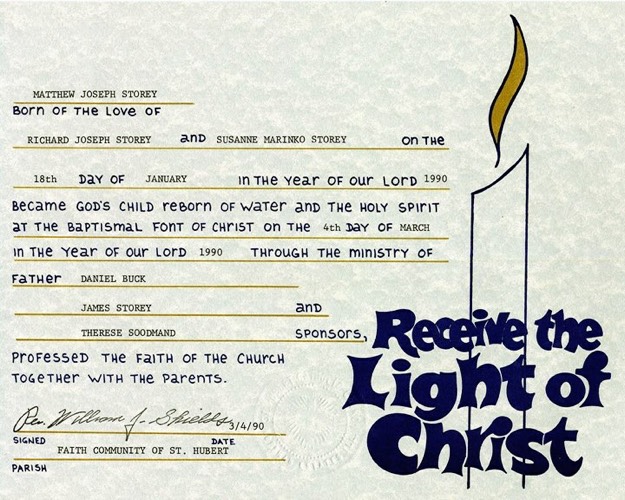 MATTHEW JOSEPH STOREY
BORN OF THE LOVE OF
RICHARD JOSEPH STOREY AND SUSANNE MARINKO STOREY ON THE
18th DAY OF JANUARY IN THE YEAR OF OUR LORD 1990
BECAME GOD'S CHILD REBORN OF WATER AND THE HOLY SPIRIT
AT THE BAPTISMAL FONT OF CHRIST ON THE 4th DAY OF MARCH
IN THE YEAR OF OUR LORD 1990 THROUGH THE MINISTRY OF
FATHER DANIEL BUCK
JAMES STOREY AND
THERESE SOODMAND SPONSORS,
PROFESSED THE FAITH OF THE CHURCH
TOGETHER WITH THE PARENTS.
Rev. William J. Shields 3/4/90
SIGNED DATE
FAITH COMMUNITY OF ST. HUBERT
PARISH
Receive the
Light of
Christ